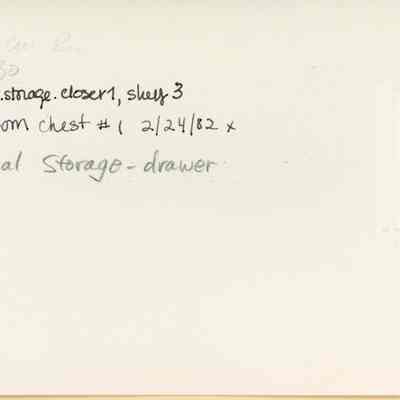 30
.storage.closer1, shelf 3
om chest # 1 2/24/82 x
al Storage - drawer